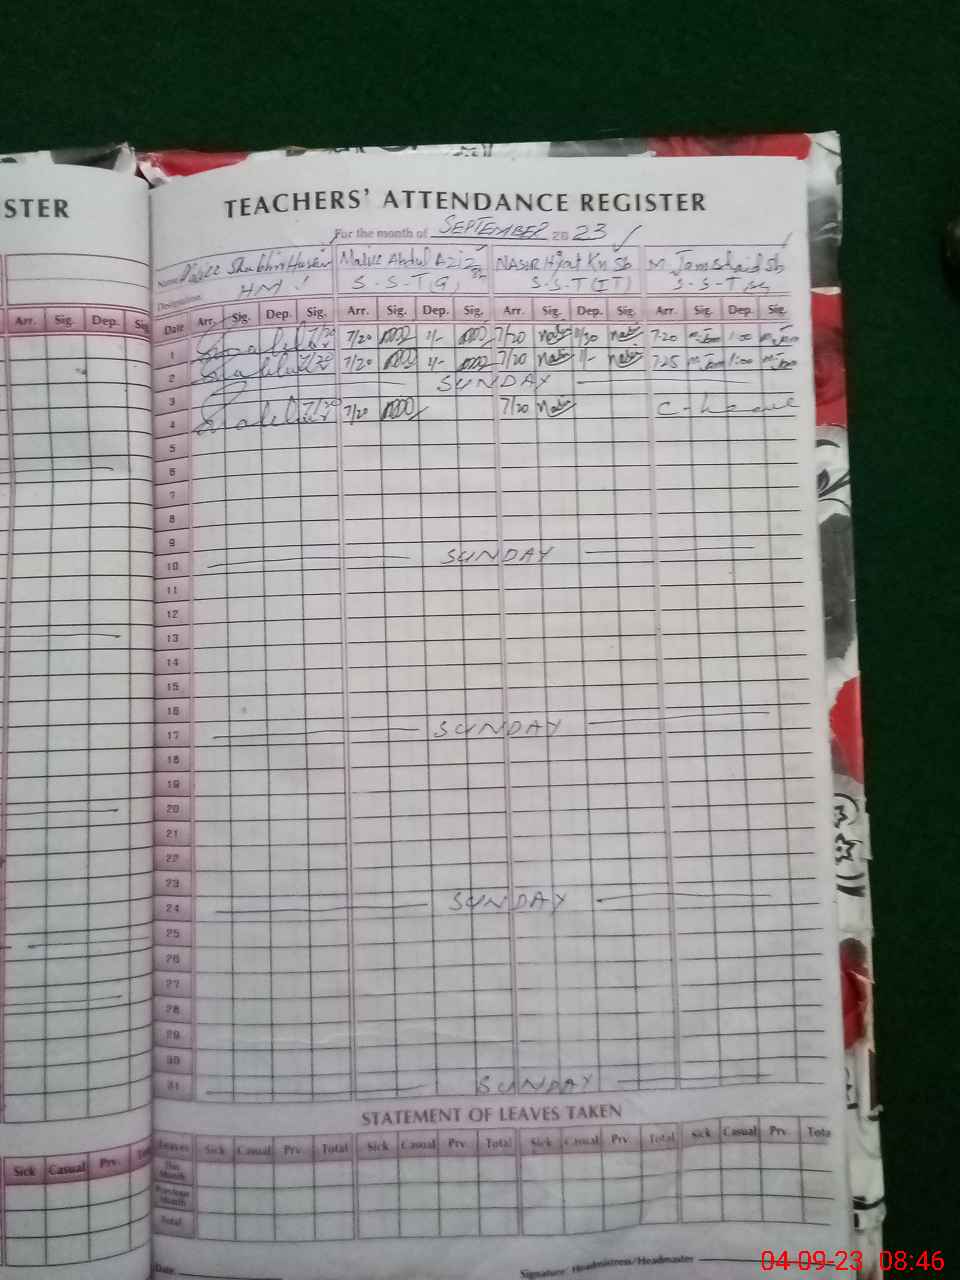 STER
TEACHERS' ATTENDANCE REGISTER
For the month of SEPTEMBER 2023
Name Shabbir Husain Malik Abdul Aziz Sb NASIR Hyat Kn Sb M. Jamshaid Sb
Designation HM S-S-T(G) S-S-T(IT) S-S-T
Arr. Sig. Dep. Sig
Date Arr. Sig. Dep. Sig. Arr. Sig. Dep. Sig. Arr. Sig. Dep. Sig. Arr. Sig. Dep. Sig.
1 7/20 7/20 1/- 7/20 1/30 7-20 1:00
2 7/20 7/20 1/- 7/20 1/- 7-25 1:00
3 SUNDAY
4 7/20 7/20 7/20 C-leave
5
6
7
8
9
10 SUNDAY
11
12
13
14
15
16
17 SUNDAY
18
19
20
21
22
23
24 SUNDAY
25
26
27
28
29
30
31 SUNDAY
STATEMENT OF LEAVES TAKEN
Leaves Sick Casual Prv. Total Sick Casual Prv. Total Sick Casual Prv. Total Sick Casual Prv. Tota
Sick Casual Prv.
This Month
Previous Month
Total
Date
Signature Headmistress/Headmaster
04-09-23 08:46